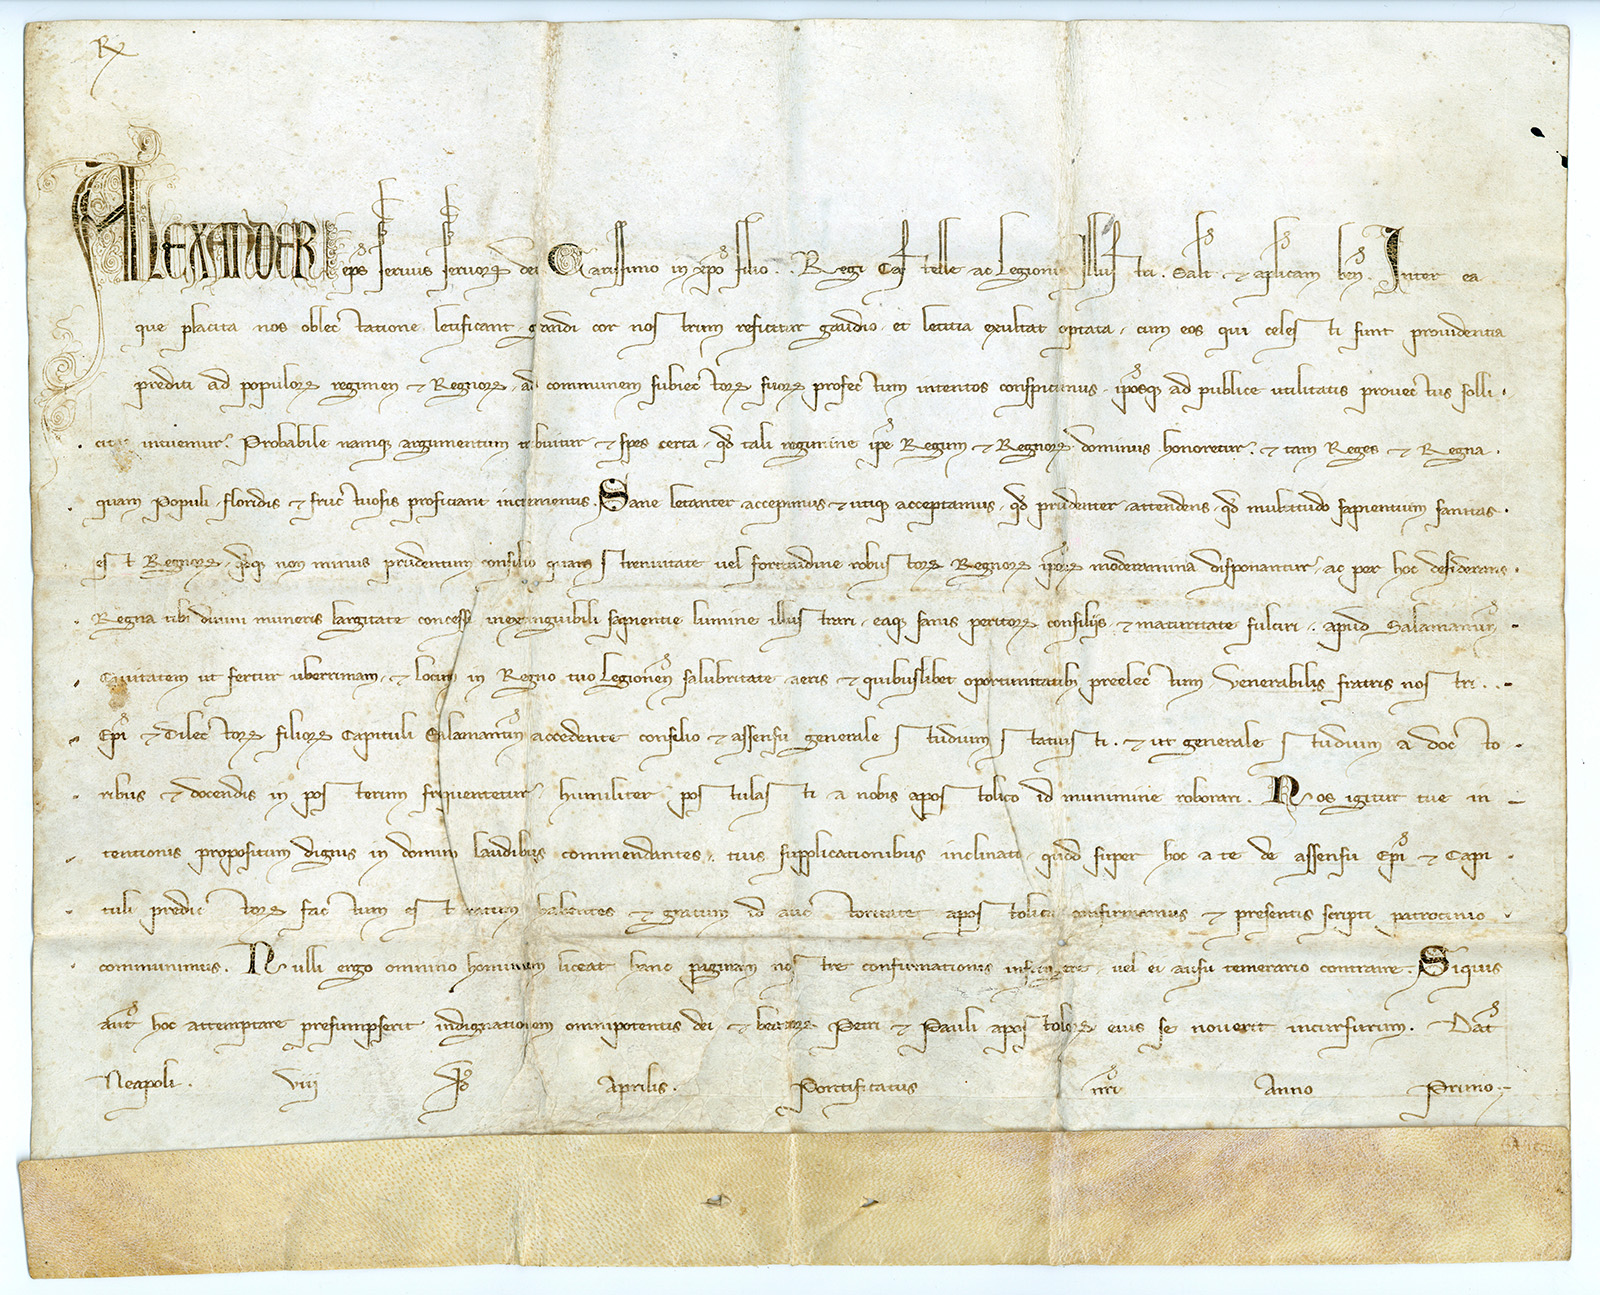 Rx
ALEXANDER ep̄s servus servoꝝ dei Carissimo in xp̄o filio . . Regi Castelle ac Legionis Illustri . Salt̄ ⁊ aplicam ben̄ . Inter ea
que placita nos oblectatione letificant grandi cor nostrum reficitur gaudio et letitia exultat optata , cum eos qui celesti sunt providentia
prediti ad populoꝝ regimen ⁊ Regnoꝝ , ad communem subiectoꝝ suoꝝ profectum intentos conspicimus , ip̄osqꝫ ad publice utilitatis provectus solli
citos intuemur . Probabile namqꝫ argumentum tribuitur ⁊ spes certa , qd̄ tali regimine ip̄e Regum ⁊ Regnoꝝ dominus honoretur , ⁊ tam Reges ⁊ Regna
quam Populi floridis ⁊ fructuosis proficiant incrementis . Sane letanter accepimus ⁊ utiqꝫ acceptamus , qd̄ prudenter attendens , qd̄ multitudo sapientum sanitas
est Regnoꝝ , qd̄qꝫ non minus prudentum consilio quam strenuitate vel fortitudine robustoꝝ Regnoꝝ ip̄oꝝ moderamina disponantur , ac per hoc desiderans
Regna tibi divini muneris largitate concessa inextinguibili sapientie lumine illustrari , eaqꝫ sanis peritoꝝ consiliis ⁊ maturitate fulciri , apud Salamantin̄
Civitatem ut fertur uberrimam , ⁊ locum in Regno tuo Legionen̄ salubritate aeris ⁊ quibuslibet oportunitatibꝫ preelectum Venerabilis fratris nostri . .
Ep̄i ⁊ Dilectoꝝ filioꝝ Capituli Salamantin̄ accedente consilio ⁊ assensu generale studium statuisti . ⁊ ut generale studium a docto
ribus ⁊ docendis in posterum frequentetur , humiliter postulasti a nobis apostolico id munimine roborari . Nos igitur tue in
tentionis propositum dignis in domino laudibus commendantes , tuis supplicationibus inclinati , quod super hoc a te de assensu Ep̄i ⁊ Capi
tuli predictoꝝ factum est ratum habentes ⁊ gratum id auctoritate apostolica confirmamus ⁊ presentis scripti patrocinio
communimus . Nulli ergo omnino hominum liceat hanc paginam nostre confirmationis infringere , vel ei ausu temerario contraire . Siquis
aut̄ hoc attemptare presumpserit indignationem omnipotentis dei ⁊ beatoꝝ Petri ⁊ Pauli apostoloꝝ eius se noverit incursurum . Dat̄
Neapoli . viij Id̄ Aprilis . Pontificatus nr̄i Anno Primo .